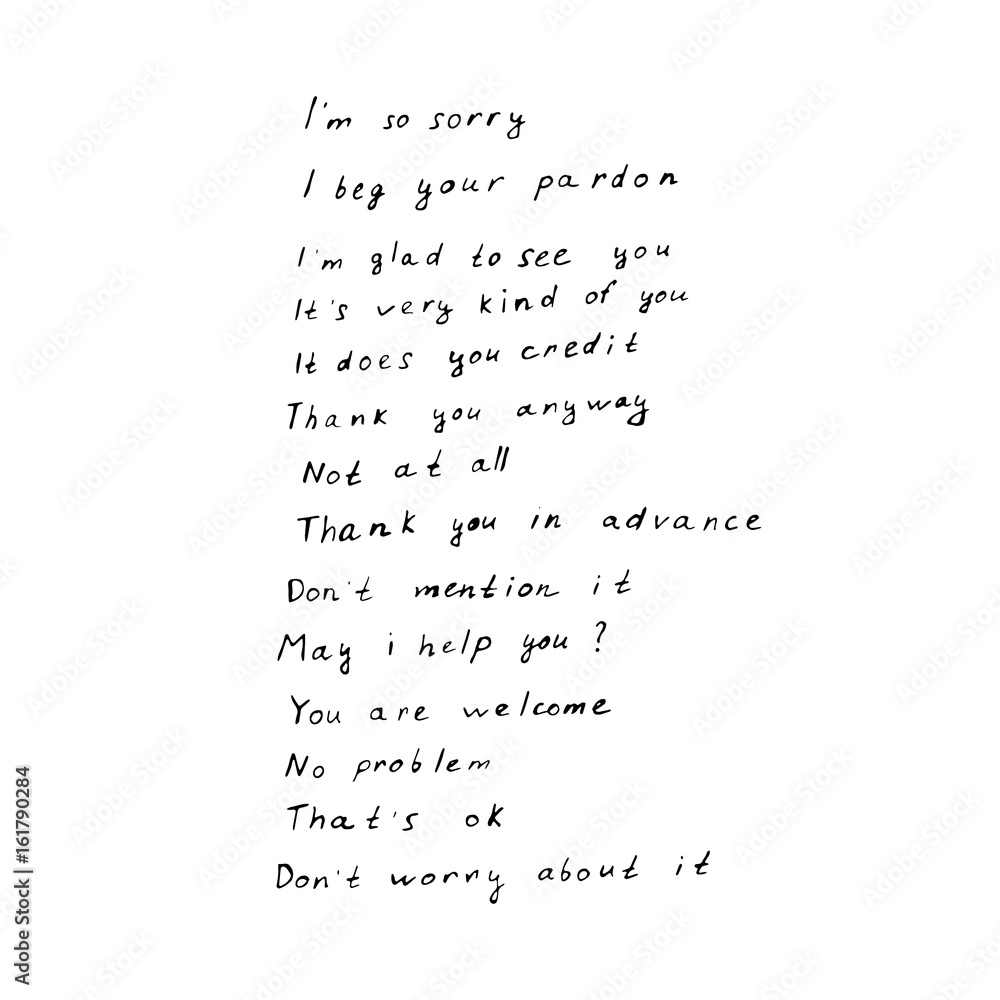 I'm so sorry
I beg your pardon
I'm glad to see you
It's very kind of you
It does you credit
Thank you anyway
Not at all
Thank you in advance
Don't mention it
May i help you?
You are welcome
No problem
That's ok
Don't worry about it
Adobe Stock | #161790284